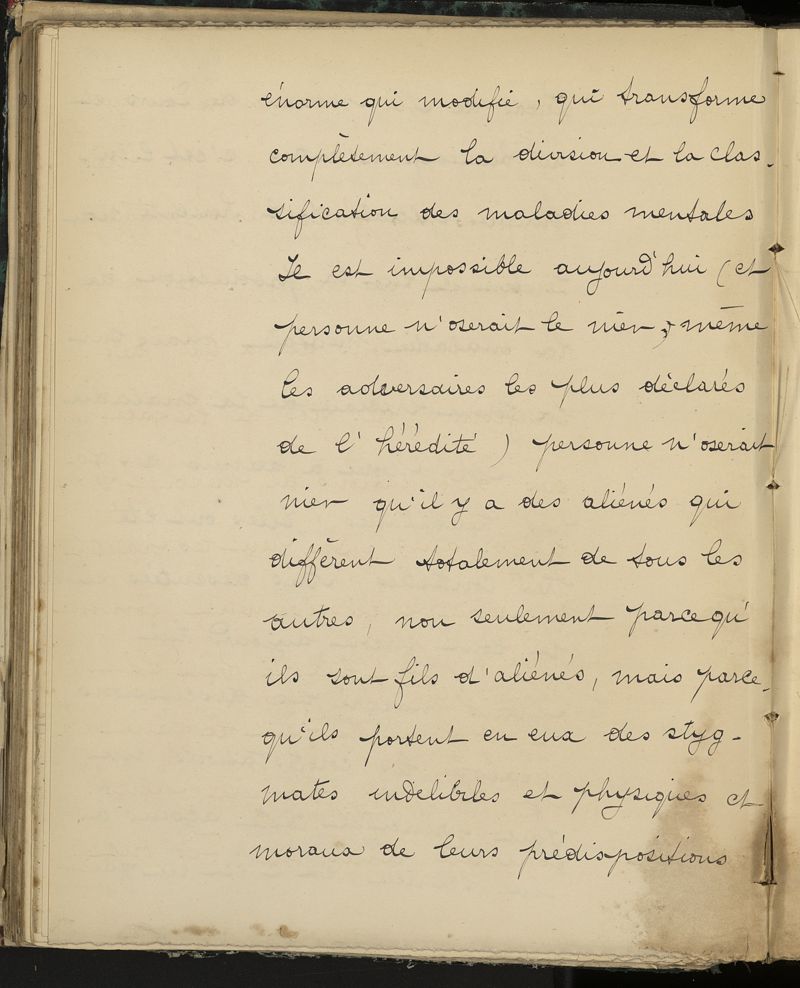 énorme qui modifie, qui transforme
complètement la division et la clas-
sification des maladies mentales
Il est impossible aujourd'hui (et
personne n'oserait le nier, même
les adversaires les plus déclarés
de l'hérédité) personne n'oserait
nier qu'il y a des aliénés qui
diffèrent totalement de tous les
autres, non seulement parcequ'
ils sont fils d'aliénés, mais parce-
qu'ils portent en eux des styg-
mates indélibiles et physiques et
moraux de leurs prédispositions